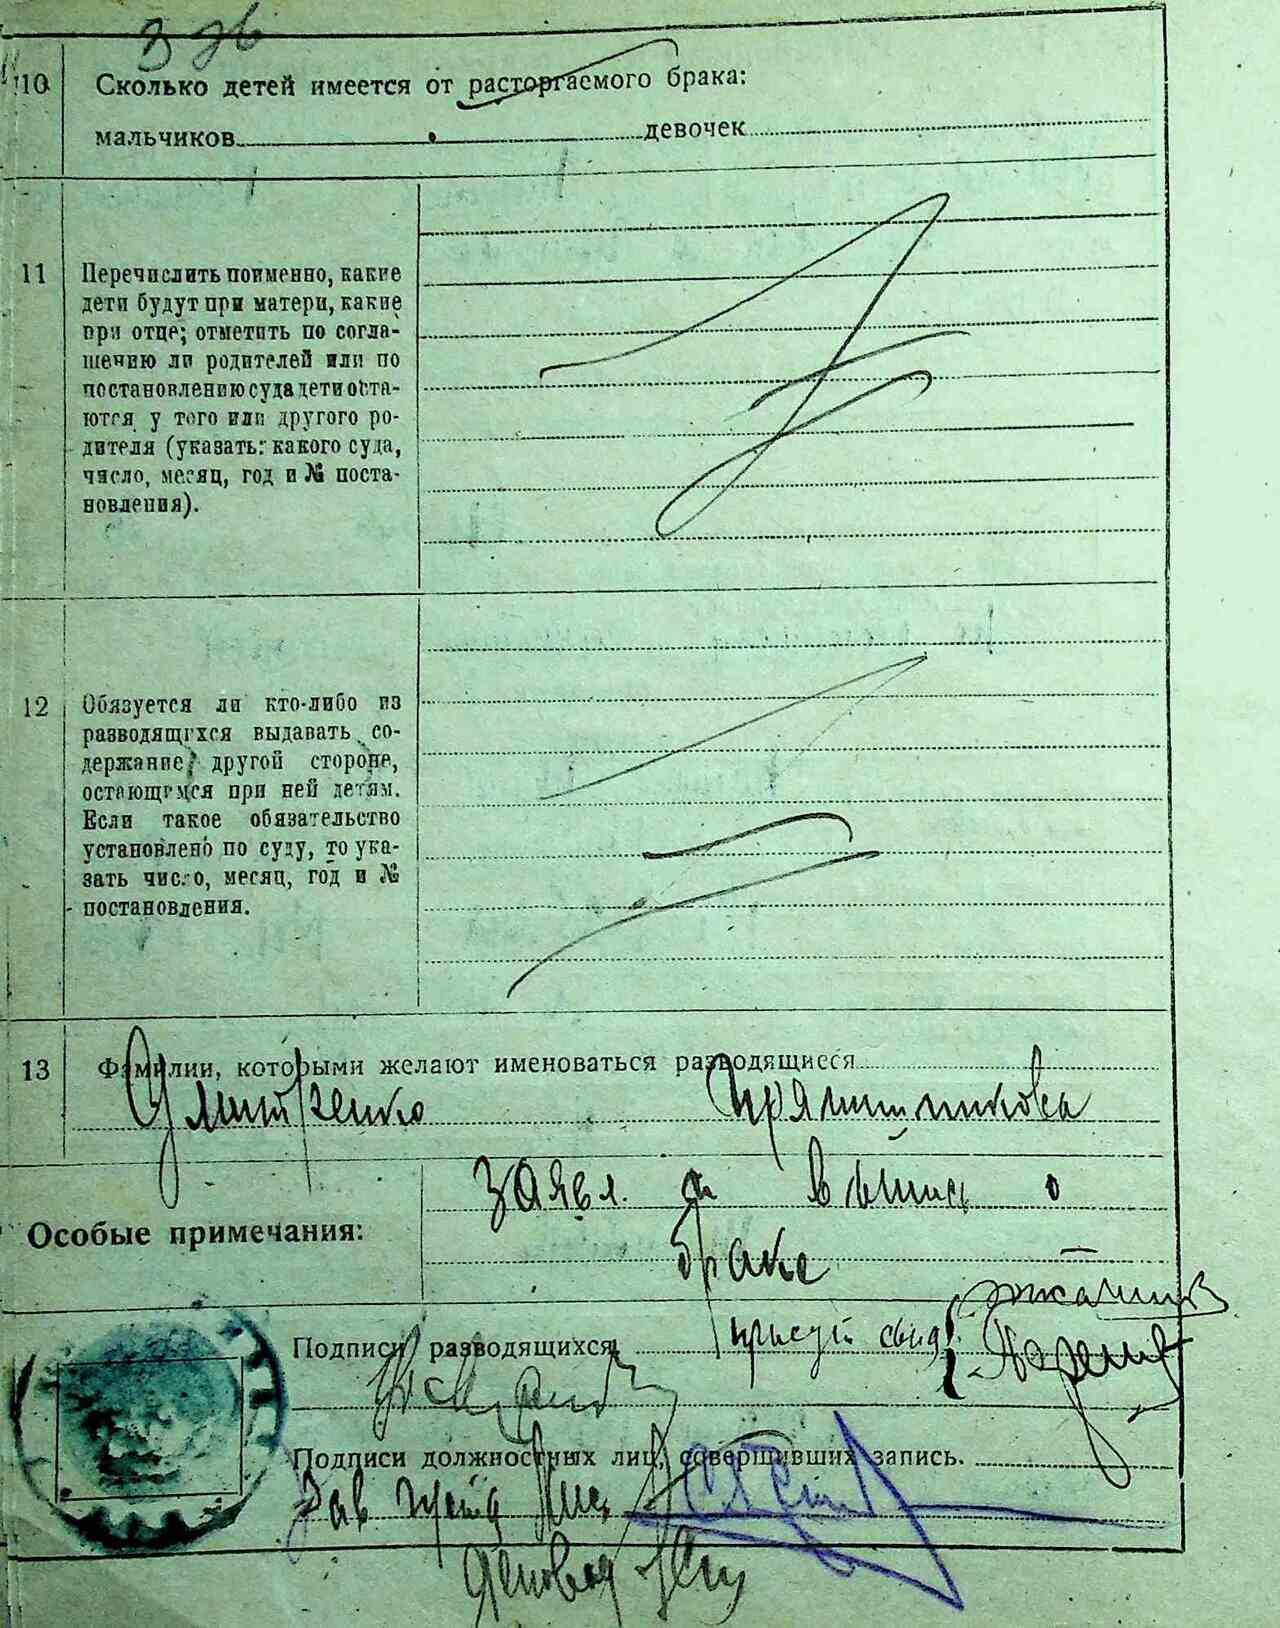 10 Сколько детей имеется от расторгаемого брака:
мальчиков девочек
11 Перечислить поименно, какие
дети будут при матери, какие
при отце; отметить по согла-
шению ли родителей или по
постановлению суда дети оста-
ются у того или другого ро-
дителя (указать: какого суда,
число, месяц, год и № поста-
новления).
12 Обязуется ли кто-либо из
разводящихся выдавать со-
держание другой стороне,
остающимся при ней детям.
Если такое обязательство
установлено по суду, то ука-
зать число, месяц, год и №
постановления.
13 Фамилии, которыми желают именоваться разводящиеся
Дмитренко Прянишникова
Особые примечания:
заявл. и выпись о
браке
Подписи разводящихся
Подписи должностных лиц, совершивших запись.
Зав